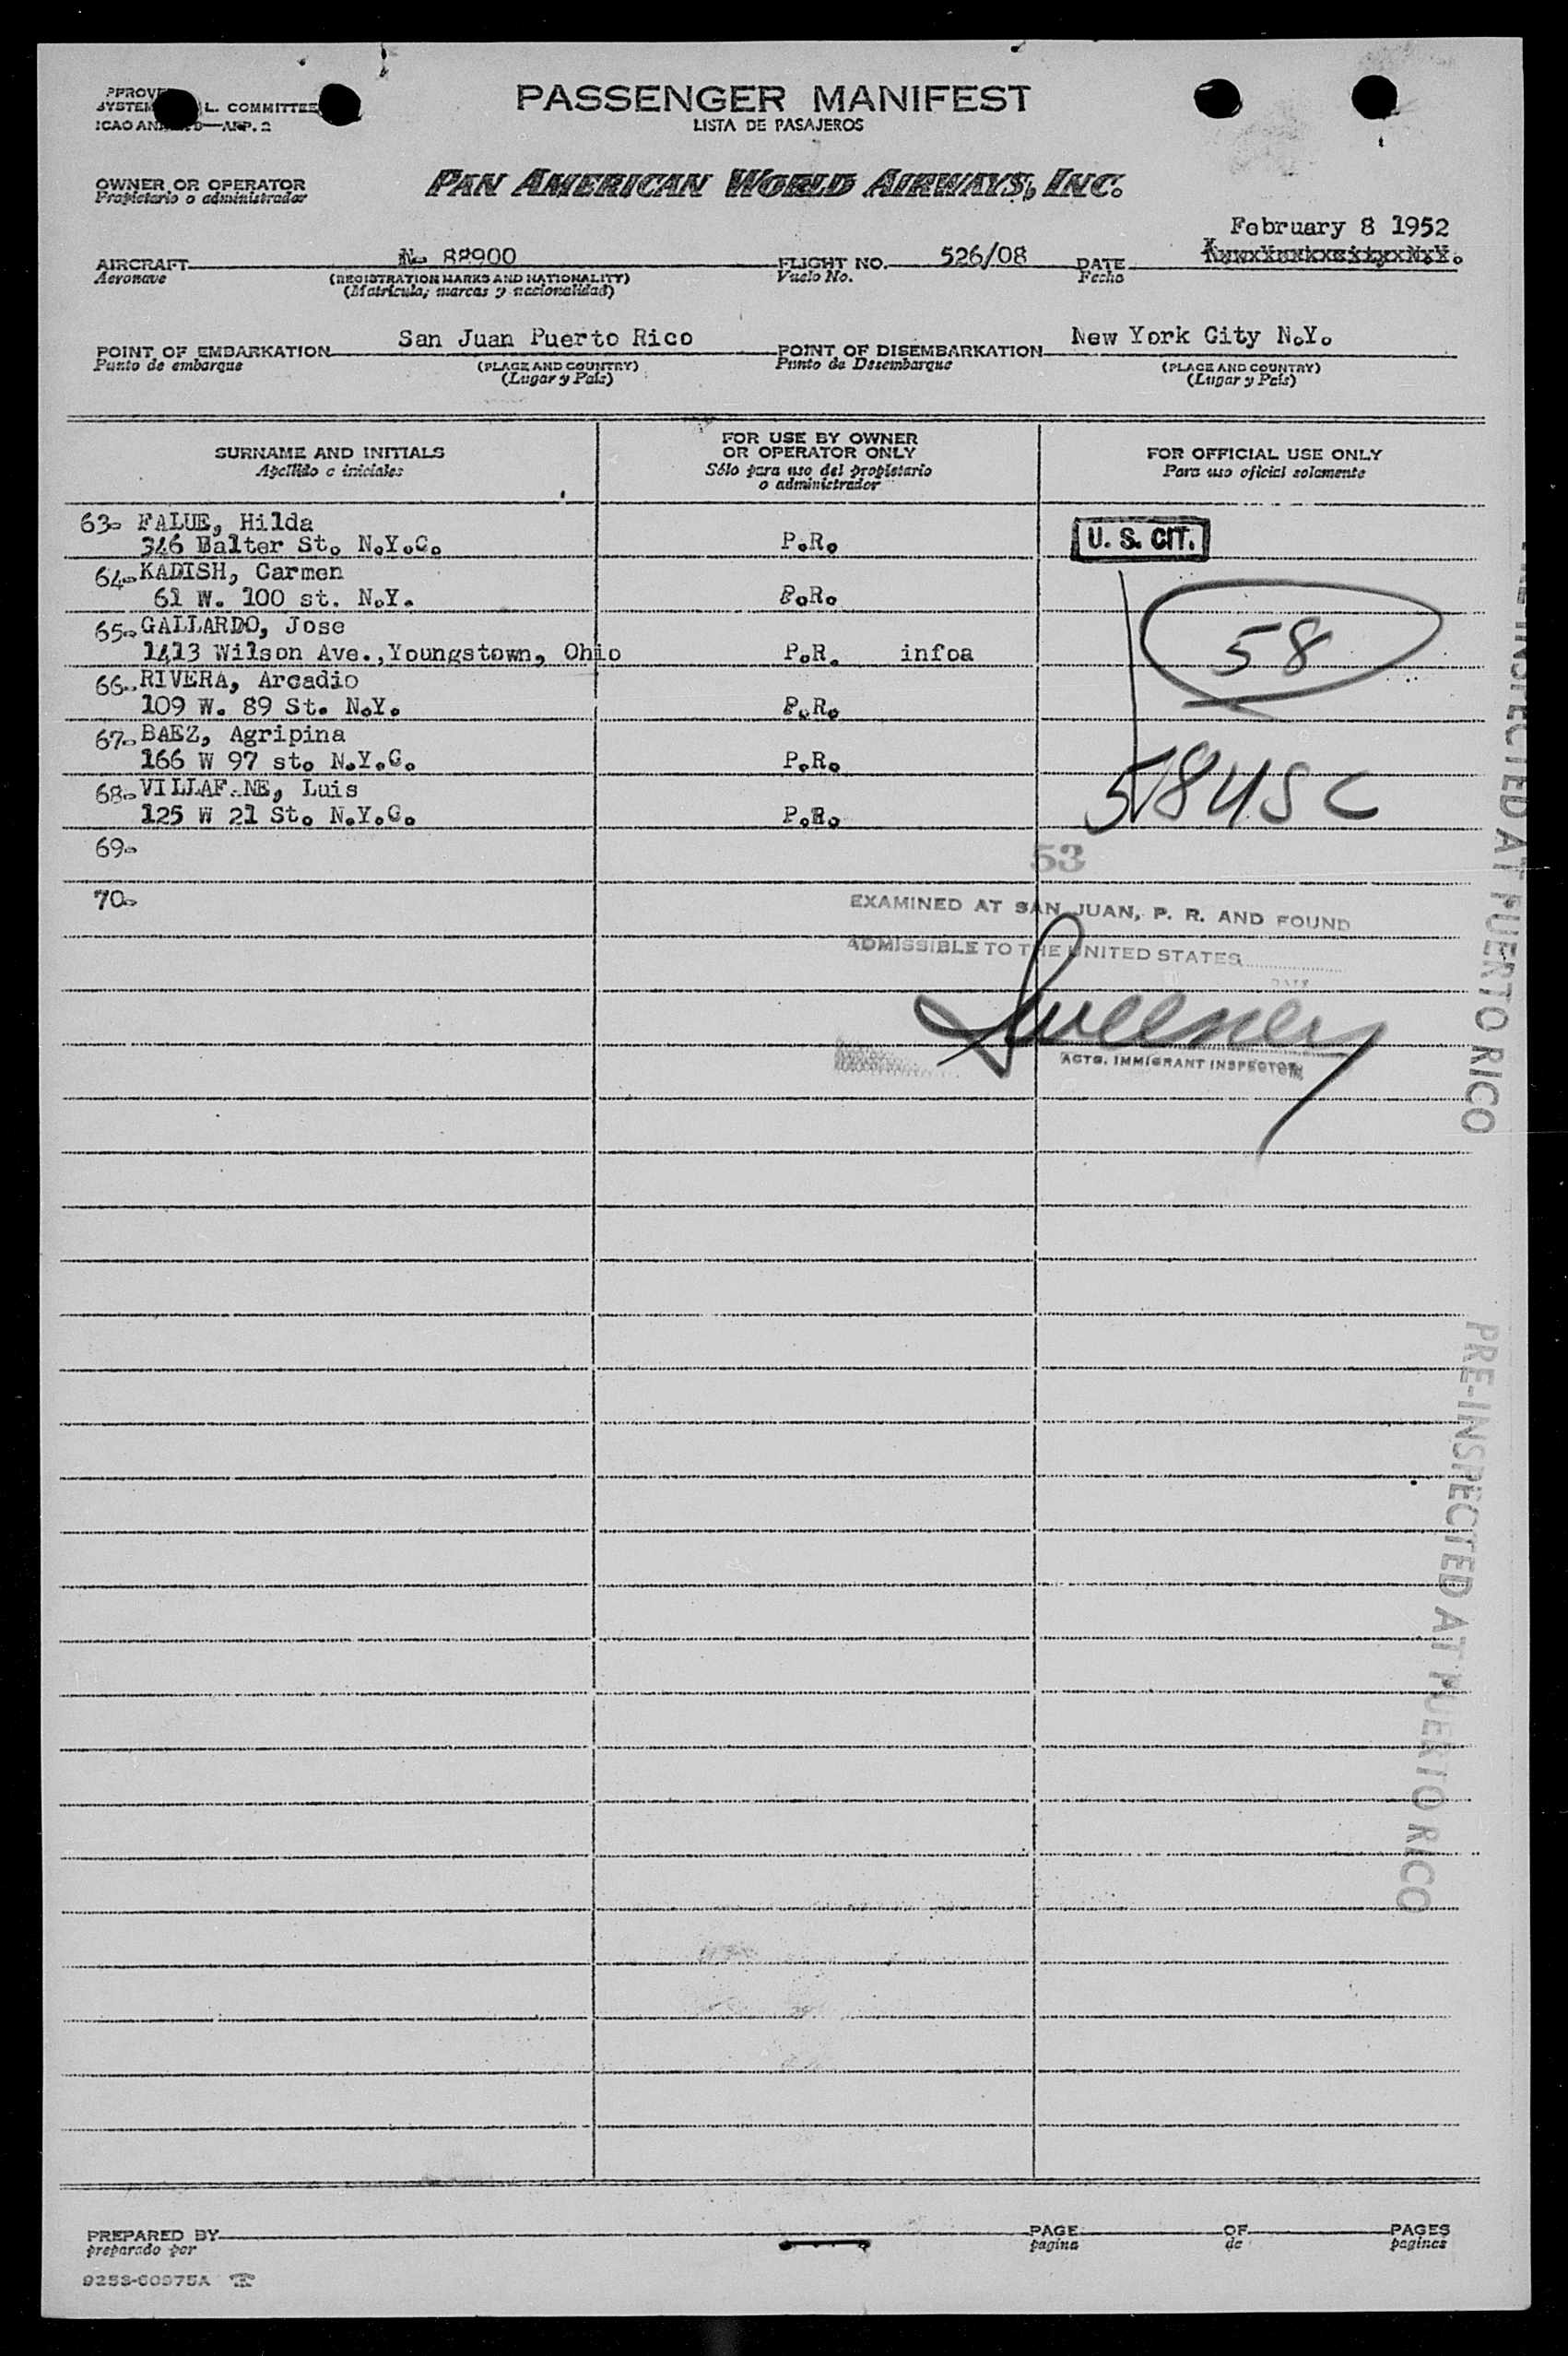 PASSENGER MANIFEST
LISTA DE PASAJEROS
L. COMMITTEE
OWNER OR OPERATOR
Propietario o administrador
PAN AMERICAN WORLD AIRWAYS, INC.
February 8 1952
AIRCRAFT N- 88900 FLIGHT NO. 526/08 DATE
Aeronave (REGISTRATION MARKS AND NATIONALITY) Vuelo No. Fecha
(Matrícula, marcas y nacionalidad)
POINT OF EMBARKATION San Juan Puerto Rico POINT OF DISEMBARKATION New York City N.Y.
Punto de embarque (PLACE AND COUNTRY) Punto de Desembarque (PLACE AND COUNTRY)
(Lugar y País) (Lugar y País)
SURNAME AND INITIALS FOR USE BY OWNER OR OPERATOR ONLY FOR OFFICIAL USE ONLY
Apellido e iniciales Sólo para uso del propietario o administrador Para uso oficial solamente
63- FALUE, Hilda
346 Balter St. N.Y.C. P.R. U. S. CIT.
64- KADISH, Carmen
61 W. 100 st. N.Y. P.R.
65- GALLARDO, Jose 58
1413 Wilson Ave., Youngstown, Ohio P.R. infoa
66- RIVERA, Arcadio
109 W. 89 St. N.Y. P.R.
67- BAEZ, Agripina
166 W 97 st. N.Y.C. P.R.
68- VILLAF NE, Luis 58 USC
125 W 21 St. N.Y.C. P.R.
69-
53
70-
EXAMINED AT SAN JUAN, P. R. AND FOUND
ADMISSIBLE TO THE UNITED STATES
DATE
Sweeney
ACTG. IMMIGRANT INSPECTOR
PRE-INSPECTED AT PUERTO RICO
PRE-INSPECTED AT PUERTO RICO
PREPARED BY PAGE OF PAGES
preparado por pagina de pagines
9253-60975A